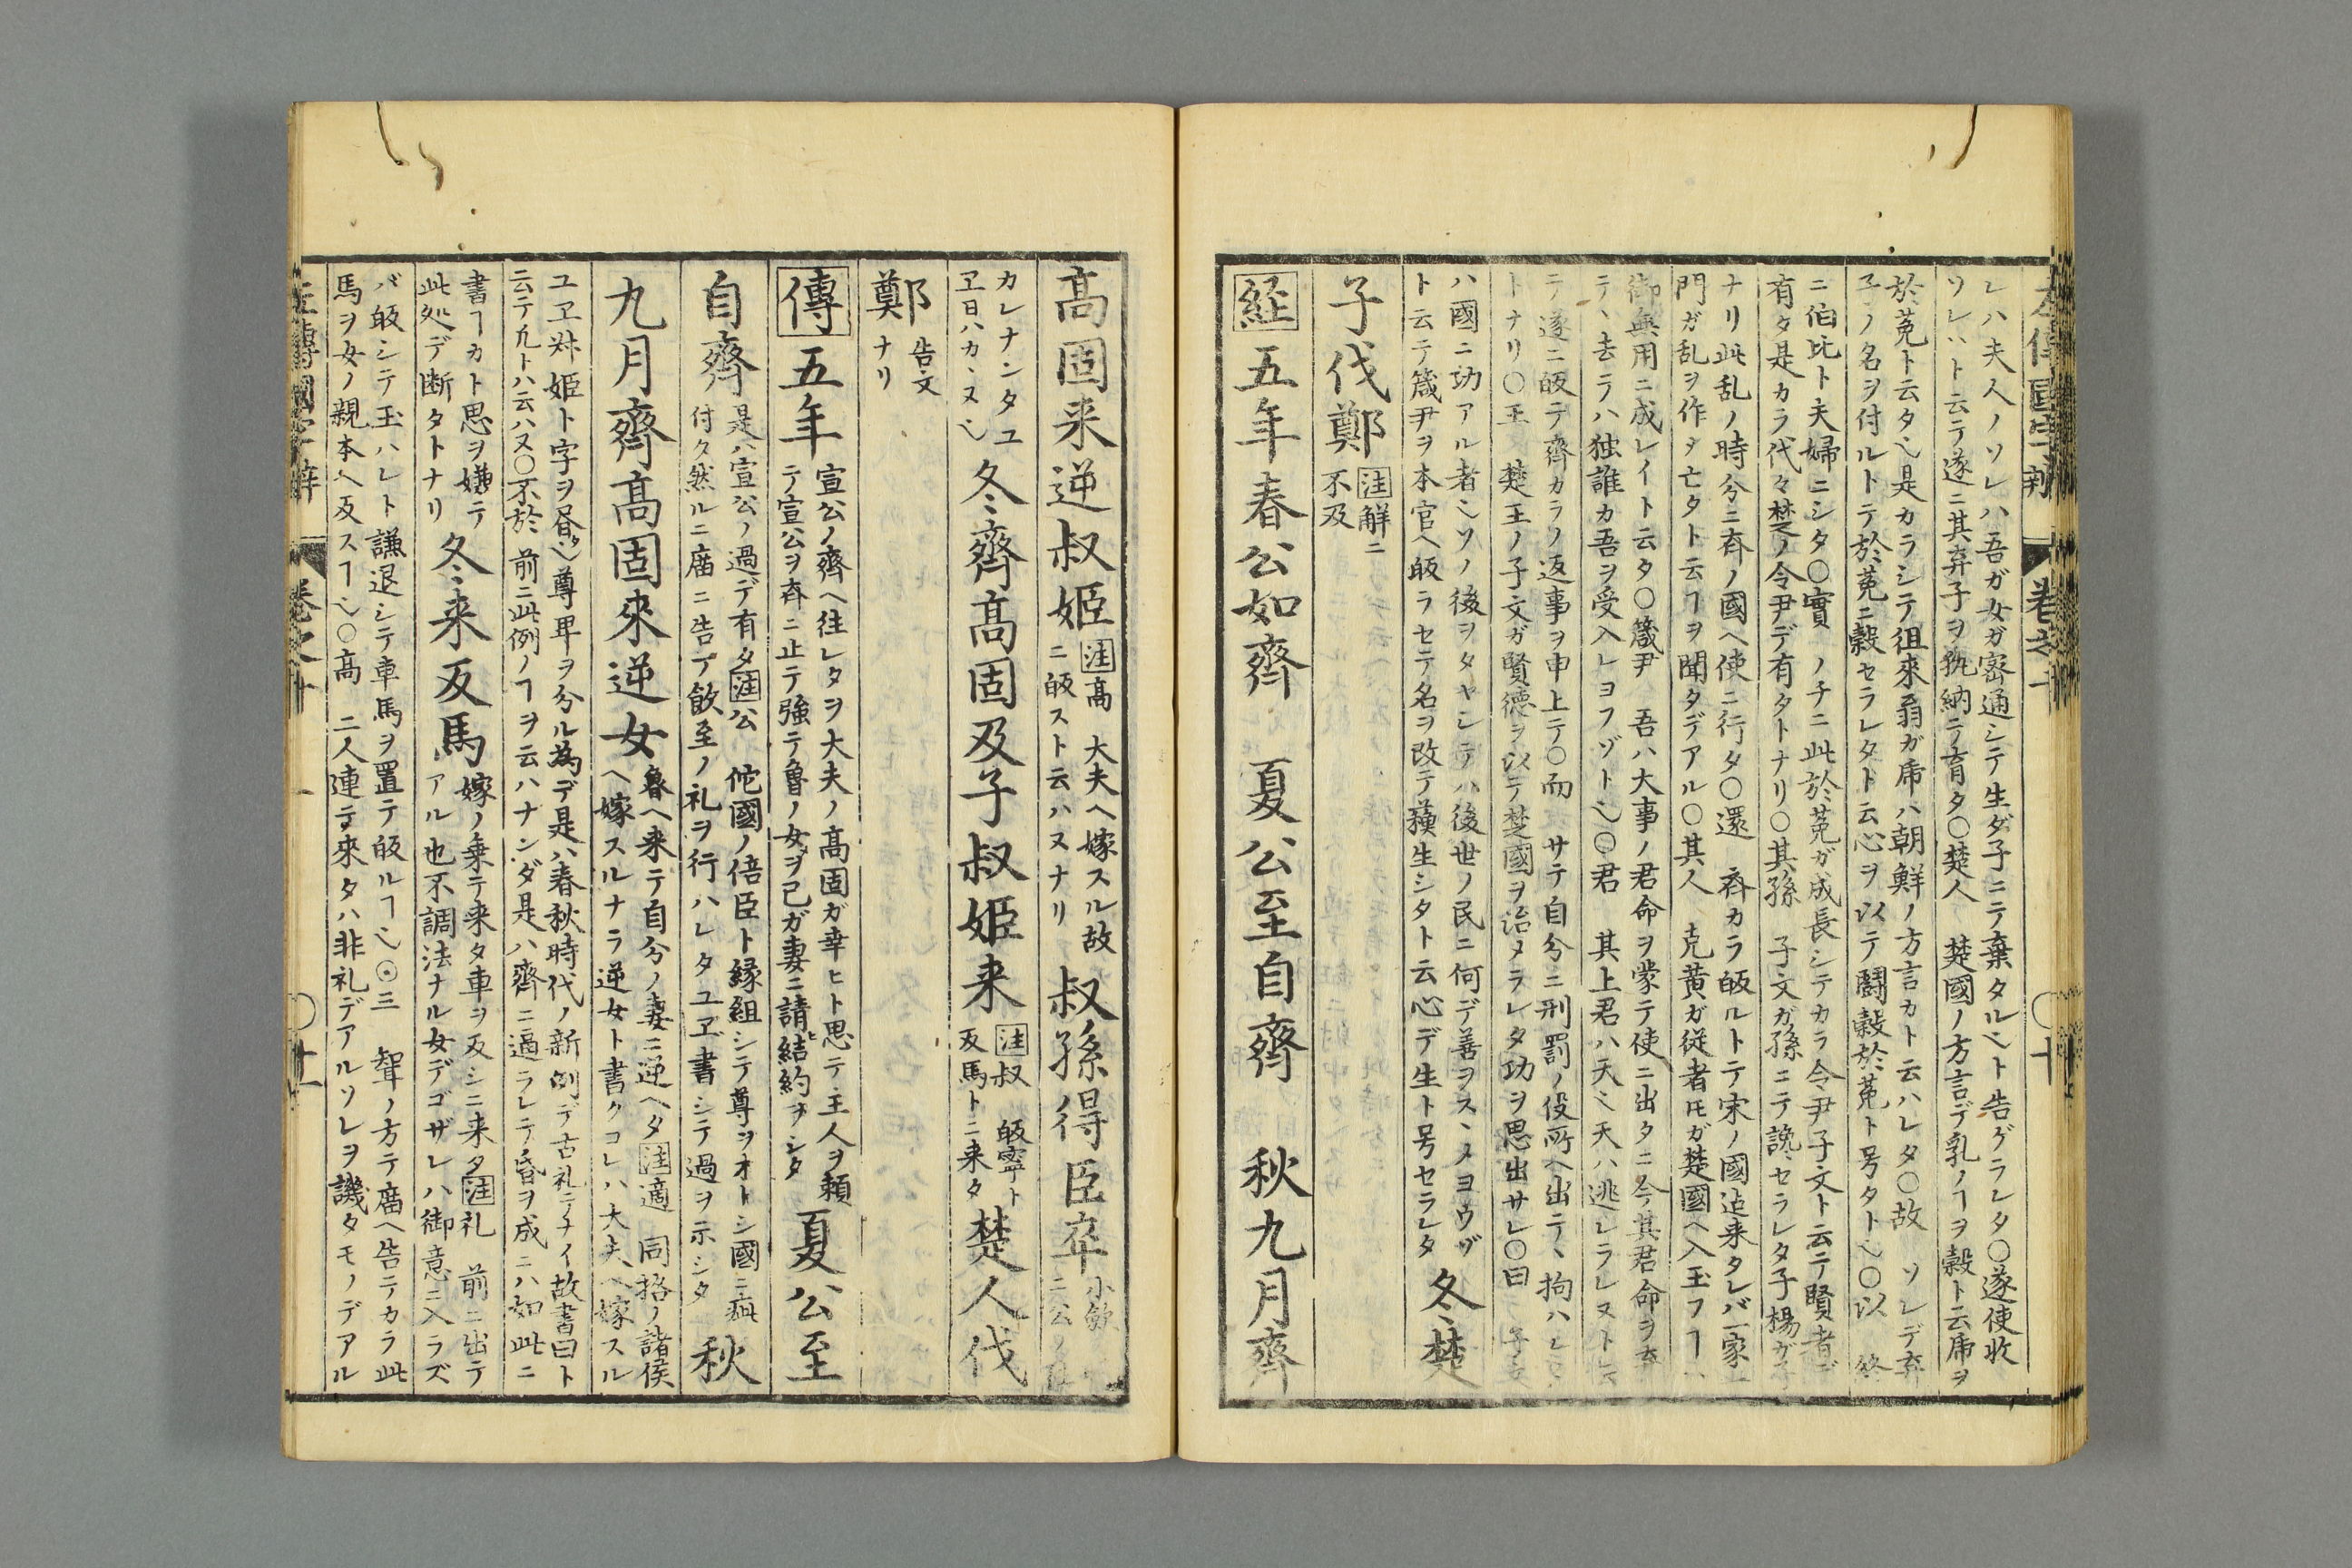 レハ夫人ノソレハ吾ガ女ガ密通シテ生ダ子ニテ棄タルヘト告ゲラレタ〇遂使收
ソレハト云テ遂ニ其弃子ヲ執納テ育タ〇楚人 楚國ノ方言デ乳ノヿヲ穀ト云虎ヲ
於菟ト云タヘ是カラシテ徂來翁ガ虎ハ朝鮮ノ方言カト云ハレタ〇故 ソレデ弃
子ノ名ヲ付ルトテ於菟ニ穀セラレタト云心ヲ以テ鬪穀於菟ト号タトヘ〇以
ニ伯比ト夫婦ニシタ〇實 ノチニ此於菟ガ成長シテカラ令尹子文ト云テ賢者デ
有タ是カラ代々楚ノ令尹デ有タトナリ〇其孫 子文ガ孫ニテ讒セラレタ子楊ガ子
ナリ此乱ノ時分ニ斉ノ國ヘ使ニ行タ〇還 斉カラ皈ルトテ宋ノ國迠来タレバ一家
門ガ乱ヲ作タ亡タト云ヿヲ聞タデアル〇其人 克黄ガ従者𪜈ガ楚國ヘ入玉フヿハ
御無用ニ成レイト云タ〇箴尹 吾ハ大事ノ君命ヲ蒙テ使ニ出タニ今其君命ヲ弃
テヽ去ラハ独誰カ吾ヲ受入レヨフゾトヘ〇君 其上君ハ天ヘ天ハ逃レラレヌト
テ遂ニ皈テ齊カラノ返事ヲ申上テ〇而 サテ自分ニ刑罰ノ役所ヘ出テヽ拘ハレ
トナリ〇王 楚王ノ子文ガ賢徳ヲ以テ楚國ヲ治メラレタ功ヲ思出サレ〇曰
ハ國ニ功アル者ヘソノ後ヲタヤシテハ後世ノ民ニ何デ善ヲスヽメヨウゾ
ト云テ箴尹ヲ本官ヘ皈ラセテ名ヲ改テ蘓生シタト云心デ生ト号セラレタ 冬楚
子伐鄭 注解ニ
不及
経 五年春公如齊 夏公至自齊 秋九月齊
高固来逆叔姫 注高 大夫ヘ嫁スル故
ニ皈ストハ云ハヌナリ 叔孫得臣卒 小歛
ニ公ノ
カレナンタユ
ヱ日ハカヽヌヘ 冬齊高固及子叔姫来 注叔 皈寧ト
反馬トニ来タ 楚人伐
鄭 告文
ナリ
傳 五年 宣公ノ齊ヘ往レタヲ大夫ノ高固ガ幸ヒト思テ主人ヲ頼
テ宣公ヲ斉ニ止テ強テ魯ノ女ヲ己ガ妻ニ請結約ヲシタ 夏公至
自齊 是ハ宣公ノ過デ有タ注公 佗國ノ倍臣ト縁組シテ尊ヲオトシ國ニ
付ク然ルニ廟ニ告テ飲至ノ礼ヲ行ハレタユヱ書シテ過ヲ示シタ 秋
九月齊高固來逆女 魯ヘ来テ自分ノ妻ニ逆ヘタ注適 同格ノ諸侯
ヘ嫁スルナラ逆女ト書クコレハ大夫ヘ嫁スル
ユヱ叔姫ト字ヲ昏タヘ尊卑ヲ分ル為デ是ハ春秋時代ノ新例デ古礼ニナイ故書曰ト
云テ凡トハ云ハヌ〇不於 前ニ此例ノヿヲ云ハナンダ是ハ齊ニ逼ラレテ昏ヲ成ニハ如此ニ
書ヿカト思ヲ嫌テ
此処デ断タトナリ 冬来反馬 嫁ノ乗テ来タ車ヲ反シニ来タ注礼 前ニ出テ
アル也不調法ナル女デゴザレハ御意ニ入ラズ
バ皈シテ玉ハレト謙退シテ車馬ヲ置テ皈ルヿヘ⊙三 聟ノ方テ廟ヘ告テカラ此
馬ヲ女ノ親本ヘ反スヿヘ〇高 二人連テ來タハ非礼デアルソレヲ譏タモノデアル
左傳國字辯 卷之十 〇十一